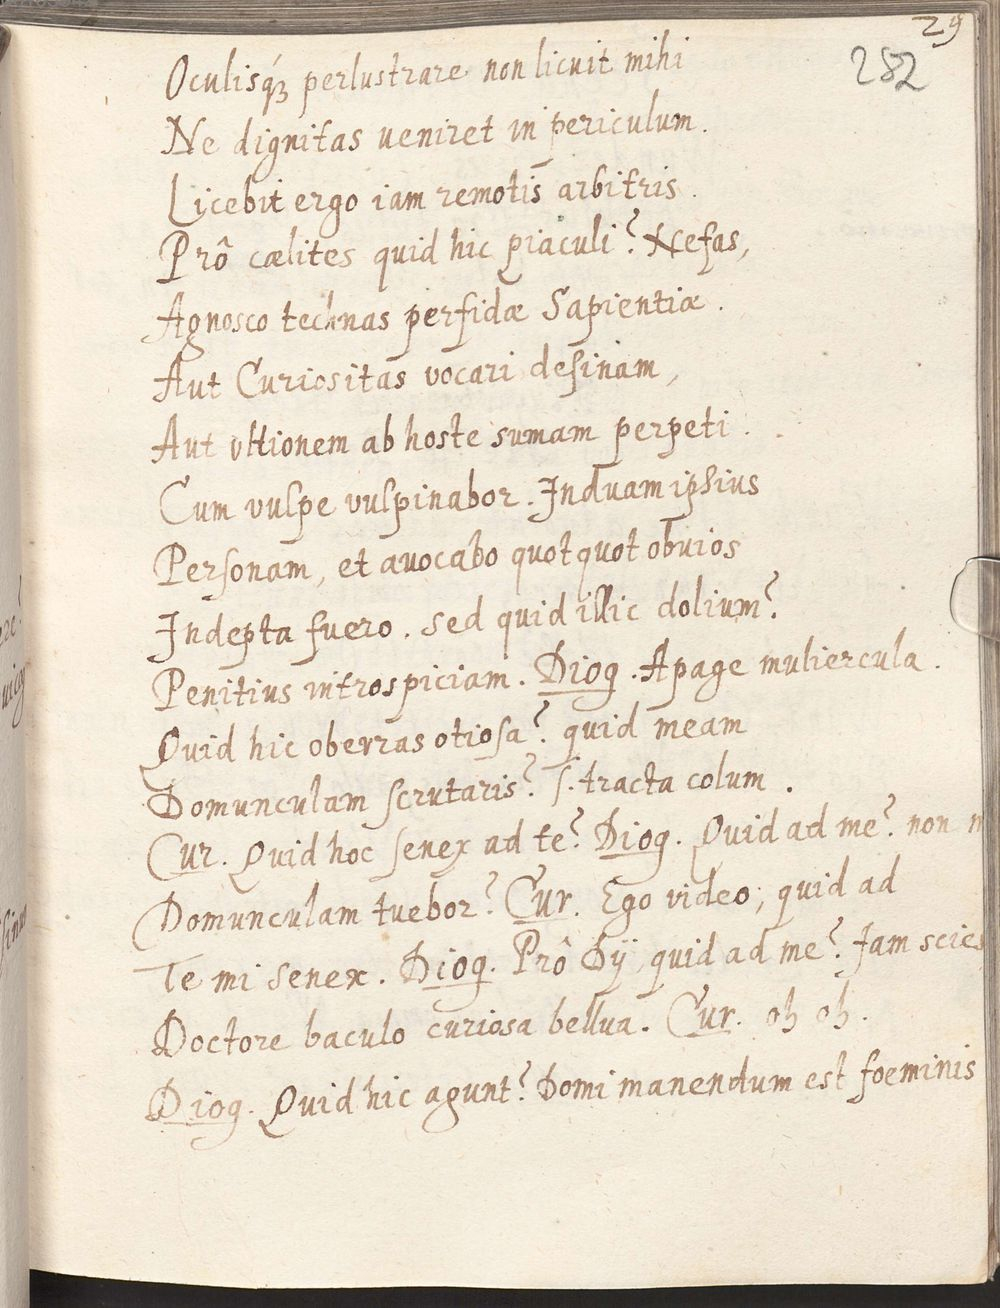 29
282
Oculisq́ꝫ perlustrare non licuit mihi
Ne dignitas veniret in periculum.
Licebit ergo iam remotis arbitris.
Prô cælites quid hic piaculi? Nefas,
Agnosco technas perfidæ Sapientiæ.
Aut Curiositas vocari desinam,
Aut vltionem ab hoste sumam perpeti.
Cum vulpe vulpinabor. Induam ipsius
Personam, et avocabo quotquot obvios
Indepta fuero. sed quid illic dolium?
Penitius introspiciam. Diog. Apage muliercula.
Quid hic oberras otiosa? quid meam
Domunculam scrutaris? s. tracta colum.
Cur. Quid hoc senex ad te? Diog. Quid ad me? non
Domunculam tuebor? Cur. Ego video; quid ad
Te mi senex. Diog. Prô Dÿ, quid ad me? Jam scies
Doctore baculo curiosa bellua. Cur. oh oh.
Diog. Quid hic agunt? Domi manendum est foeminis